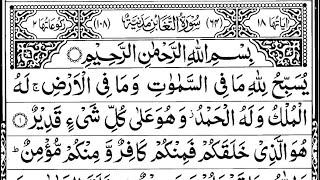 اٰيَاتُهَا ١٨ (٦٤) سُوْرَةُ التَّغَابُنِ مَدَنِيَّةٌ (١٠٨) رُكُوْعَاتُهَا ٢
بِسْمِ اللّٰهِ الرَّحْمٰنِ الرَّحِيْمِ
يُسَبِّحُ لِلّٰهِ مَا فِى السَّمٰوٰتِ وَمَا فِى الْاَرْضِ ۚ لَهُ
الْمُلْكُ وَلَهُ الْحَمْدُ ۖ وَهُوَ عَلٰى كُلِّ شَىْءٍ قَدِيْرٌ ۝١
هُوَ الَّذِىْ خَلَقَكُمْ فَمِنْكُمْ كَافِرٌ وَّ مِنْكُمْ مُّؤْمِنٌ ؕ